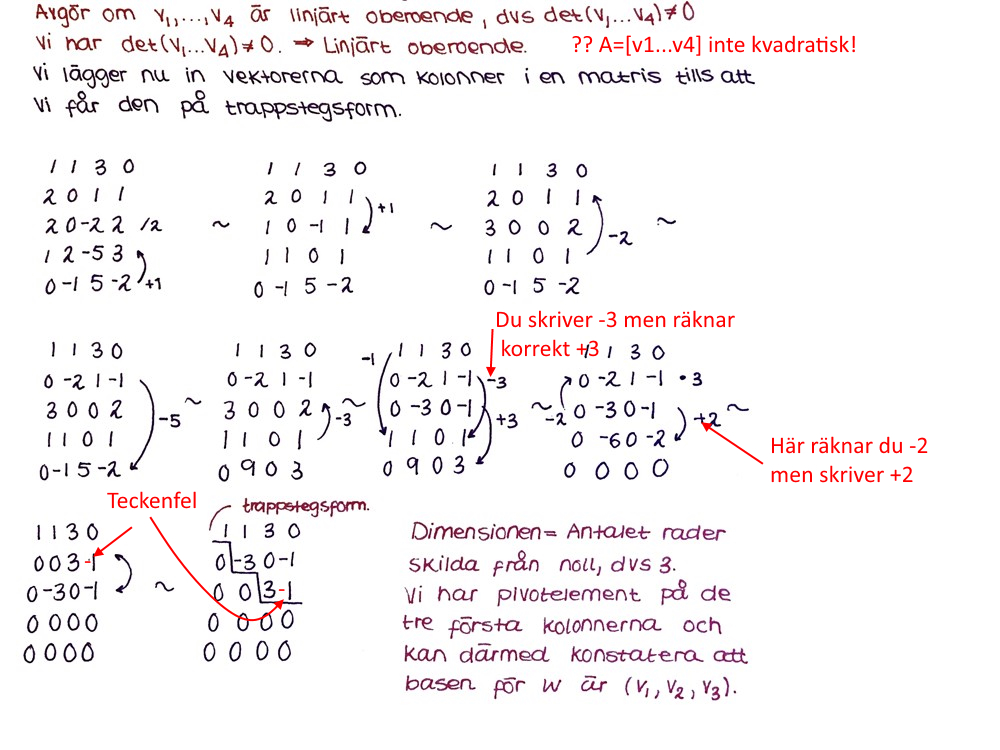 Avgör om v₁,...,v₄ är linjärt oberoende, dvs det(v₁...v₄)≠0
Vi har det(v₁...v₄)≠0. ⇒ Linjärt oberoende. ?? A=[v1...v4] inte kvadratisk!
Vi lägger nu in vektorerna som kolonner i en matris tills att
vi får den på trappstegsform.
1 1 3 0 1 1 3 0 1 1 3 0
2 0 1 1 2 0 1 1 +1 2 0 1 1
2 0 -2 2 /2 ~ 1 0 -1 1 ~ 3 0 0 2 -2 ~
1 2 -5 3 1 1 0 1 1 1 0 1
0 -1 5 -2 +1 0 -1 5 -2 0 -1 5 -2
Du skriver -3 men räknar
korrekt +3
1 1 3 0 1 1 3 0 -1 1 1 3 0 1 1 3 0
0 -2 1 -1 0 -2 1 -1 0 -2 1 -1 -3 0 -2 1 -1 •3
3 0 0 2 -5 ~ 3 0 0 2 -3 ~ 0 -3 0 -1 +3 ~ -2 0 -3 0 -1 +2 ~
1 1 0 1 1 1 0 1 1 1 0 1 0 -6 0 -2
0 -1 5 -2 0 9 0 3 0 9 0 3 0 0 0 0
Här räknar du -2
men skriver +2
Teckenfel
trappstegsform.
1 1 3 0 1 1 3 0
0 0 3 -1 0 -3 0 -1
0 -3 0 -1 ~ 0 0 3 -1
0 0 0 0 0 0 0 0
0 0 0 0 0 0 0 0
Dimensionen = Antalet rader
skilda från noll, dvs 3.
Vi har pivotelement på de
tre första kolonnerna och
kan därmed konstatera att
basen för W är (v₁, v₂, v₃).